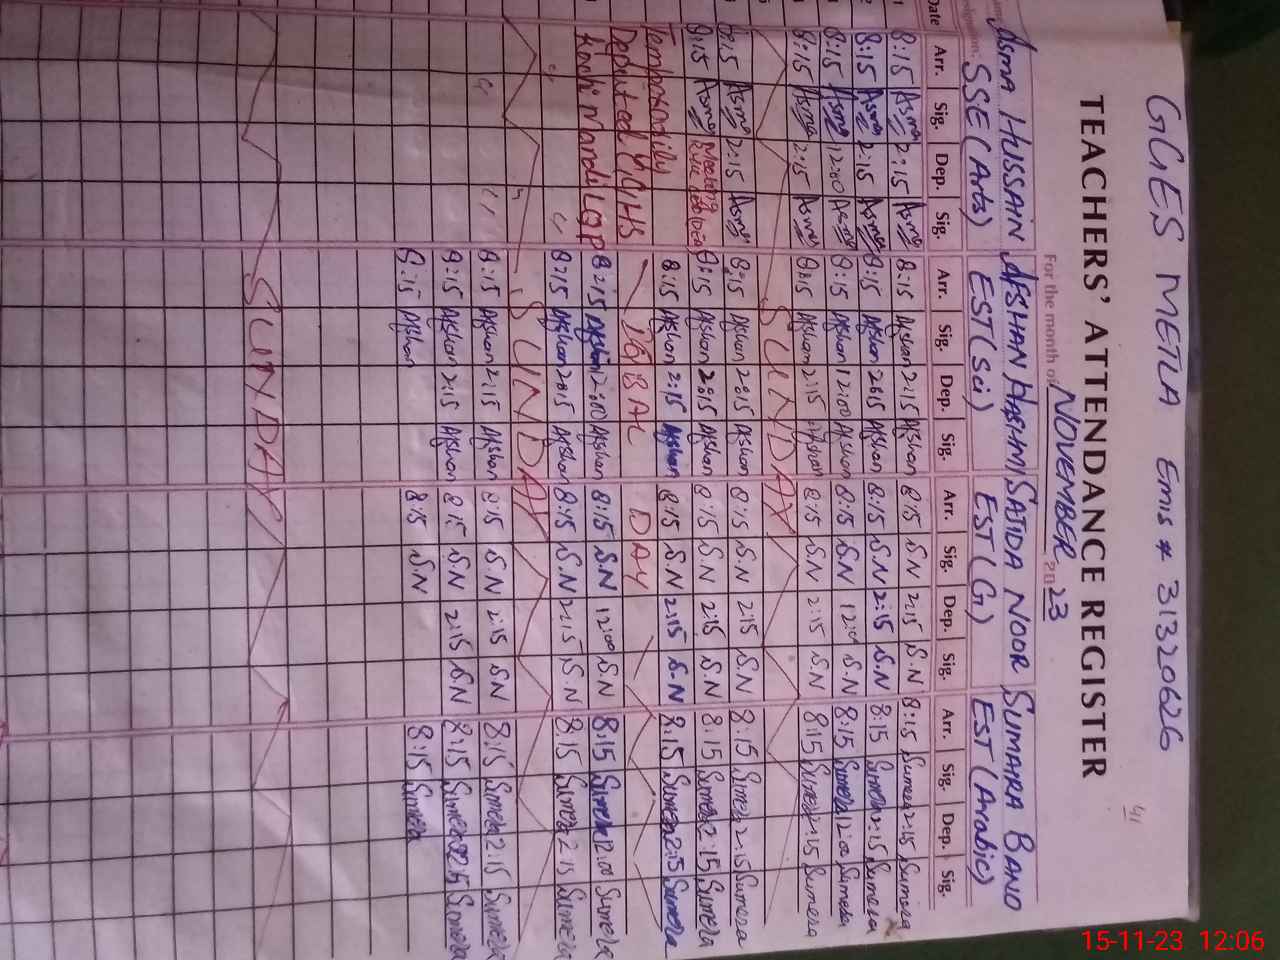 GGES METLA Emis # 31320626
41
TEACHERS' ATTENDANCE REGISTER
For the month of NOVEMBER 2023
Asma Hussain AFSHAN HASHMI SAJIDA NOOR SUMAIRA BANO
SSE (Arts) EST (Sci) EST (G) EST (Arabic)
Date Arr. Sig. Dep. Sig. Arr. Sig. Dep. Sig. Arr. Sig. Dep. Sig. Arr. Sig. Dep. Sig.
8:15 Asma 2:15 Asma 8:15 Afshan 2:15 Afshan 8:15 S.N 2:15 S.N 8:15 Sumera 2:15 Sumera
8:15 Asma 2:15 Asma 8:15 Afshan 2:15 Afshan 8:15 S.N 2:15 S.N 8:15 Sumera 2:15 Sumera
8:15 Asma 12:00 Asma 8:15 Afshan 12:00 Afshan 8:15 S.N 12:00 S.N 8:15 Sumera 12:00 Sumera
8:15 Asma 2:15 Asma 8:15 Afshan 2:15 Afshan 8:15 S.N 2:15 S.N 8:15 Sumera 2:15 Sumera
SUNDAY
8:15 Asma 2:15 Asma 8:15 Afshan 2:15 Afshan 8:15 S.N 2:15 S.N 8:15 Sumera 2:15 Sumera
8:15 Asma Meeting 8:15 Afshan 2:15 Afshan 8:15 S.N 2:15 S.N 8:15 Sumera 2:15 Sumera
Temporarily 8:15 Afshan 2:15 Afshan 8:15 S.N 2:15 S.N 8:15 Sumera 2:15 Sumera
Deputed GGHS IQBAL DAY
Mandi 8:15 Afshan 12:00 Afshan 8:15 S.N 12:00 S.N 8:15 Sumera 12:00 Sumera
8:15 Afshan 2:15 Afshan 8:15 S.N 2:15 S.N 8:15 Sumera 2:15 Sumera
SUNDAY
8:15 Afshan 2:15 Afshan 8:15 S.N 2:15 S.N 8:15 Sumera 2:15 Sumera
8:15 Afshan 2:15 Afshan 8:15 S.N 2:15 S.N 8:15 Sumera 2:15 Sumera
8:15 Afshan 8:15 S.N 8:15 Sumera
SUNDAY
15-11-23 12:06